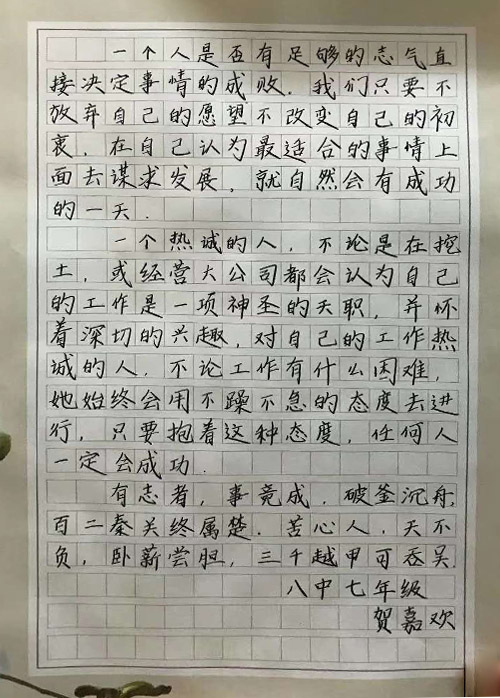 一个人是否有足够的志气直
接决定事情的成败.我们只要不
放弃自己的愿望不改变自己的初
衷,在自己认为最适合的事情上
面去谋求发展,就自然会有成功
的一天.
一个热诚的人,不论是在挖
土,或经营大公司都会认为自己
的工作是一项神圣的天职,并怀
着深切的兴趣,对自己的工作热
诚的人,不论工作有什么困难,
她始终会用不躁不急的态度去进
行,只要抱着这种态度,任何人
一定会成功.
有志者,事竟成,破釜沉舟,
百二秦关终属楚.苦心人,天不
负,卧薪尝胆,三千越甲可吞吴.
八中七年级
贺嘉欢